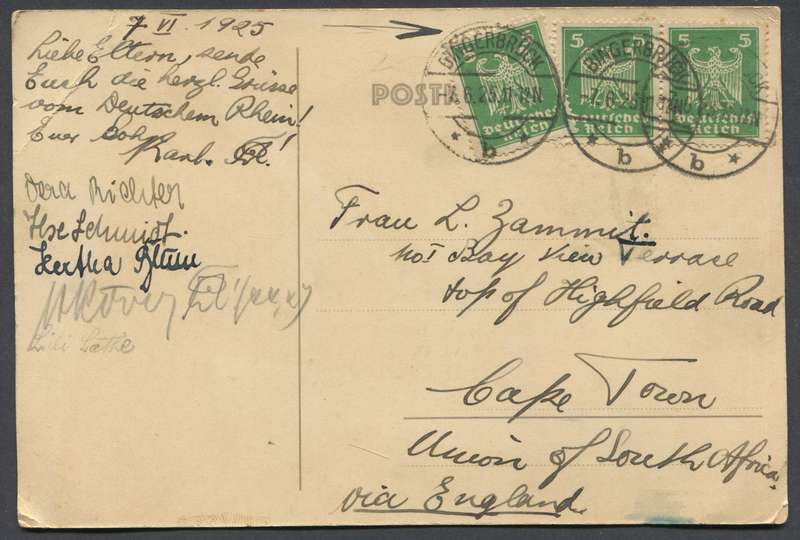 7 VI. 1925
Liebe Eltern, sende
Euch die herzl. Grüsse
vom Deutschen Rhein!
Euer
Karl.
Dora Richter
Ilse Schmidt.
Hertha Blum
Lili
POSTK
BINGERBRÜCK
7.6.25.11-12N
* b *
5 5
Deutsches
Reich
BINGERBRÜCK
7.6.25
* b *
5 5
Deutsches
Reich
5 5
Deutsches
Reich
Frau L. Zammit.
No 1 Bay View Terrace
top of Highfield Road
Cape Town
Union of South Africa.
via England.